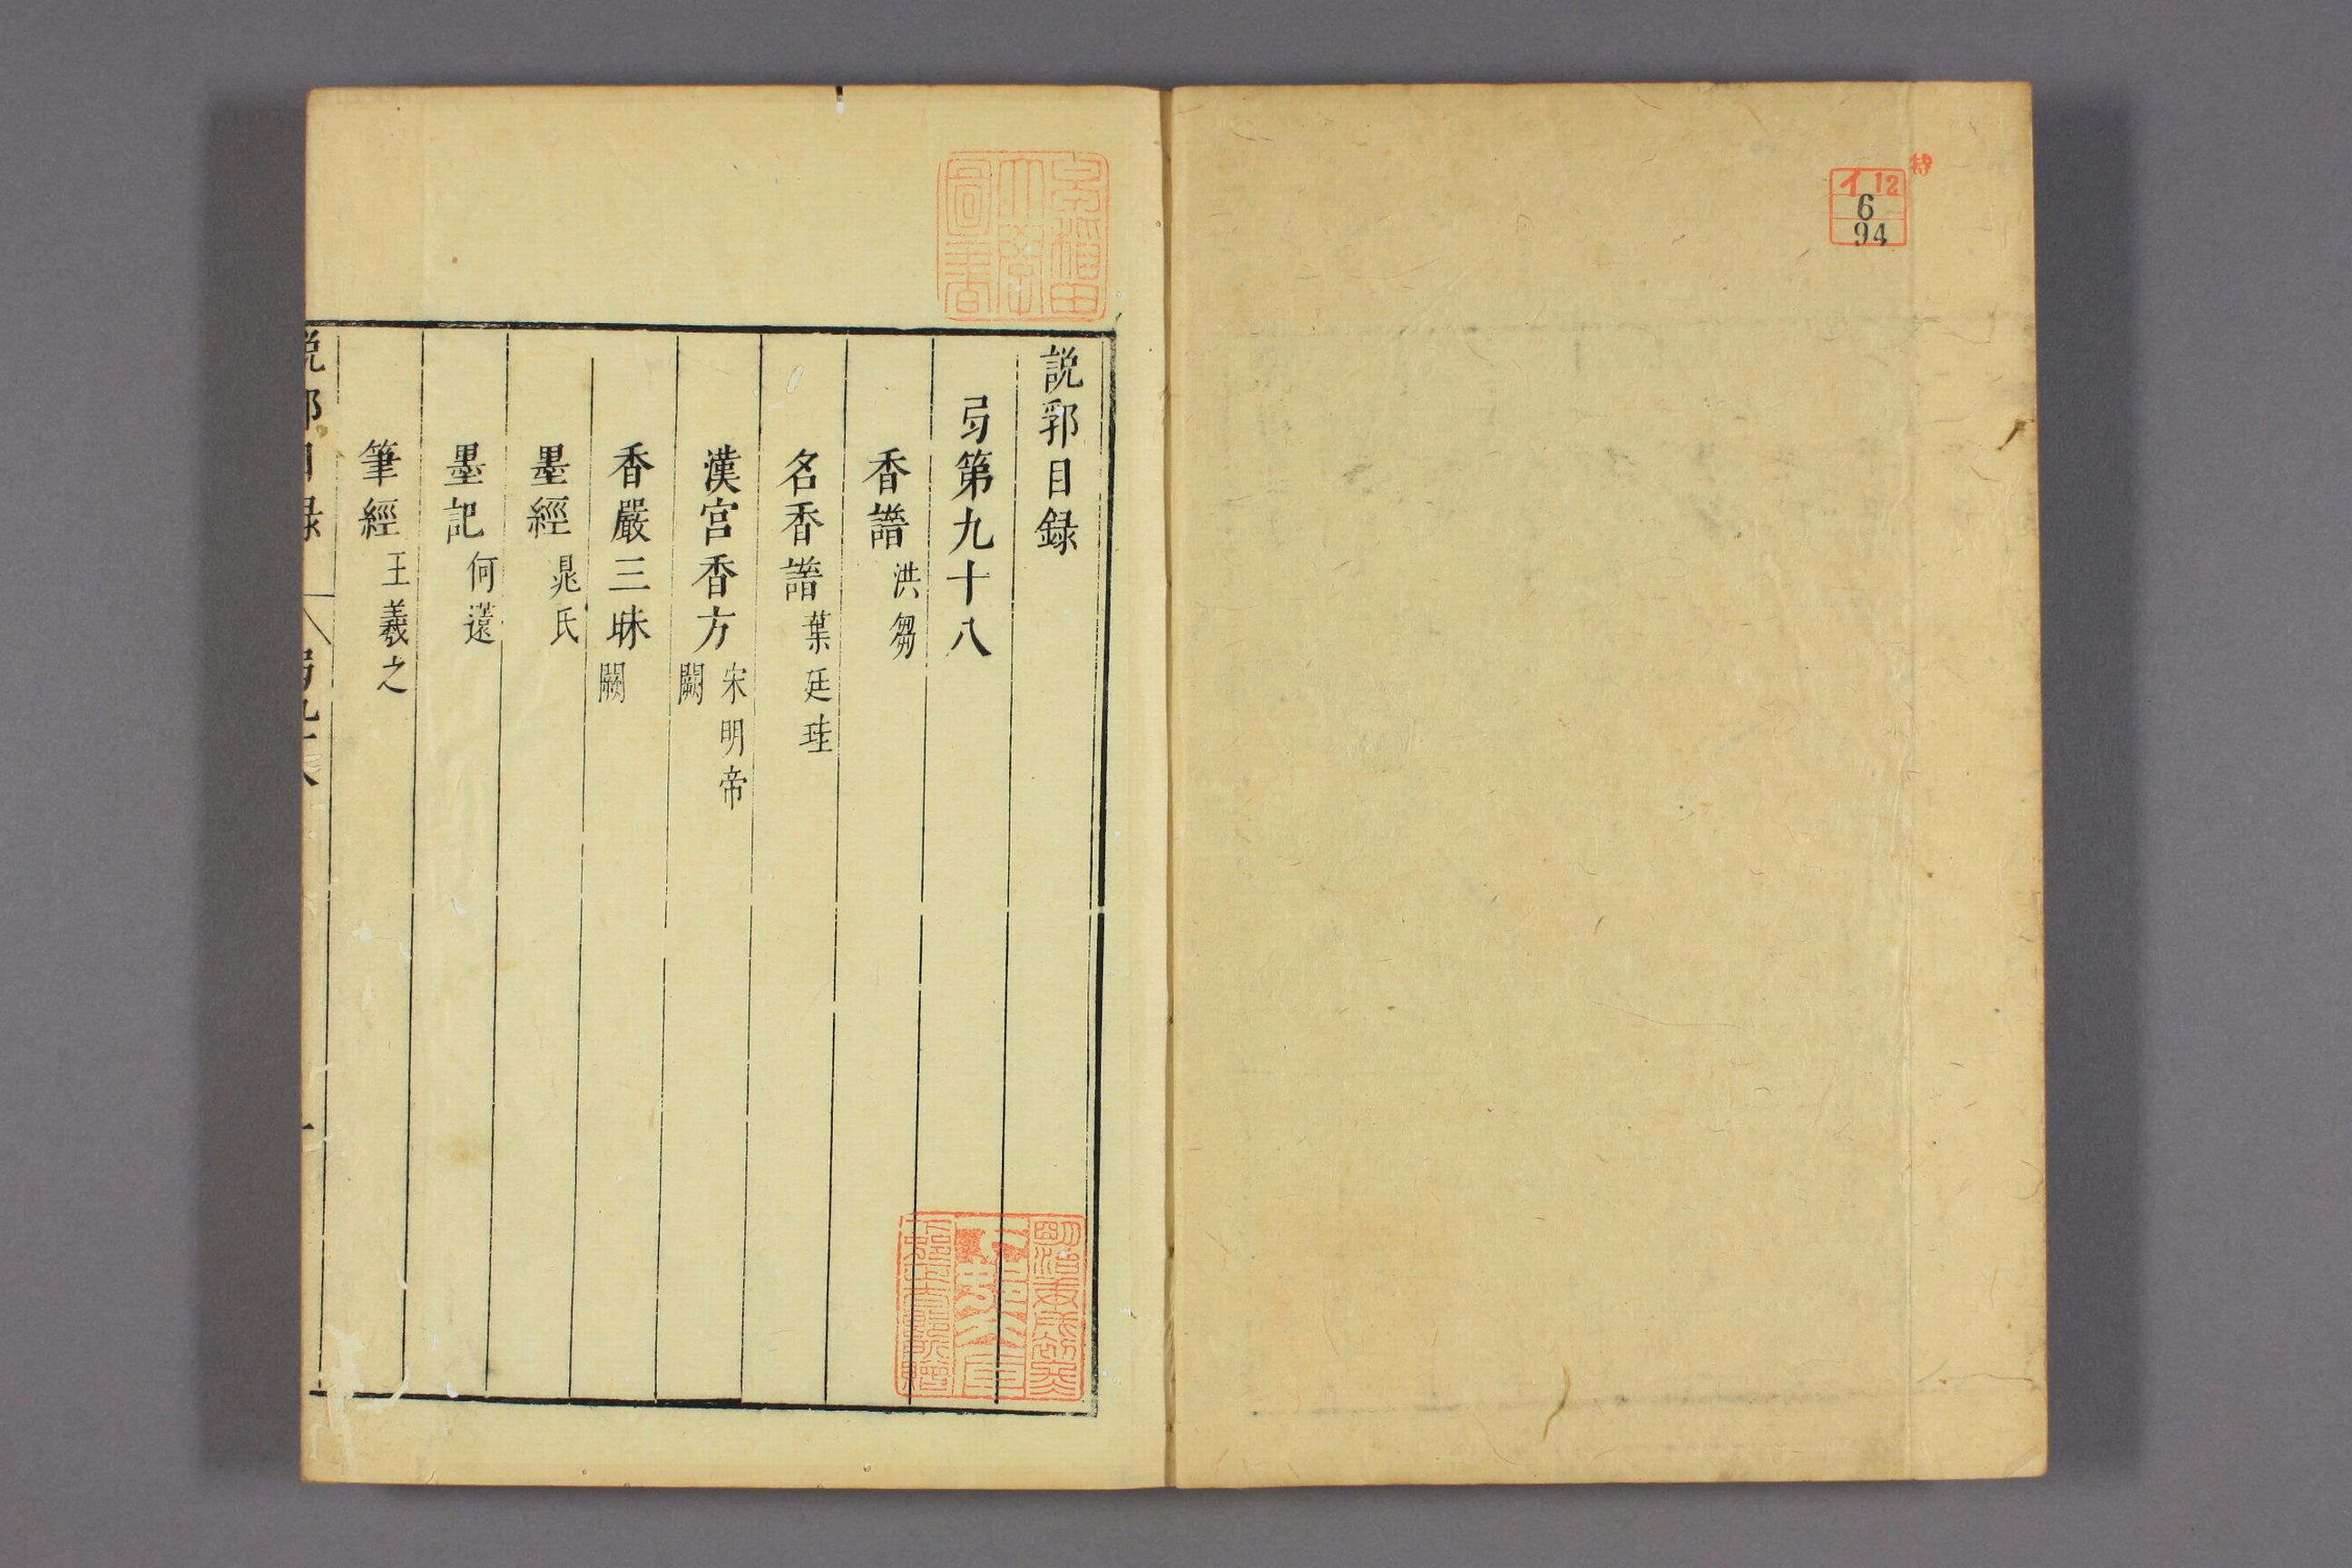 特
イ12
6
94
早稲田
大學
圖書
説郛目録
弓第九十八
香譜 洪芻
名香譜 葉廷珪
漢宮香方 宋明帝
闕
香嚴三昧 闕
墨經 晁氏
墨記 何薳
筆經 王羲之
説郛目録 弓九十八 一